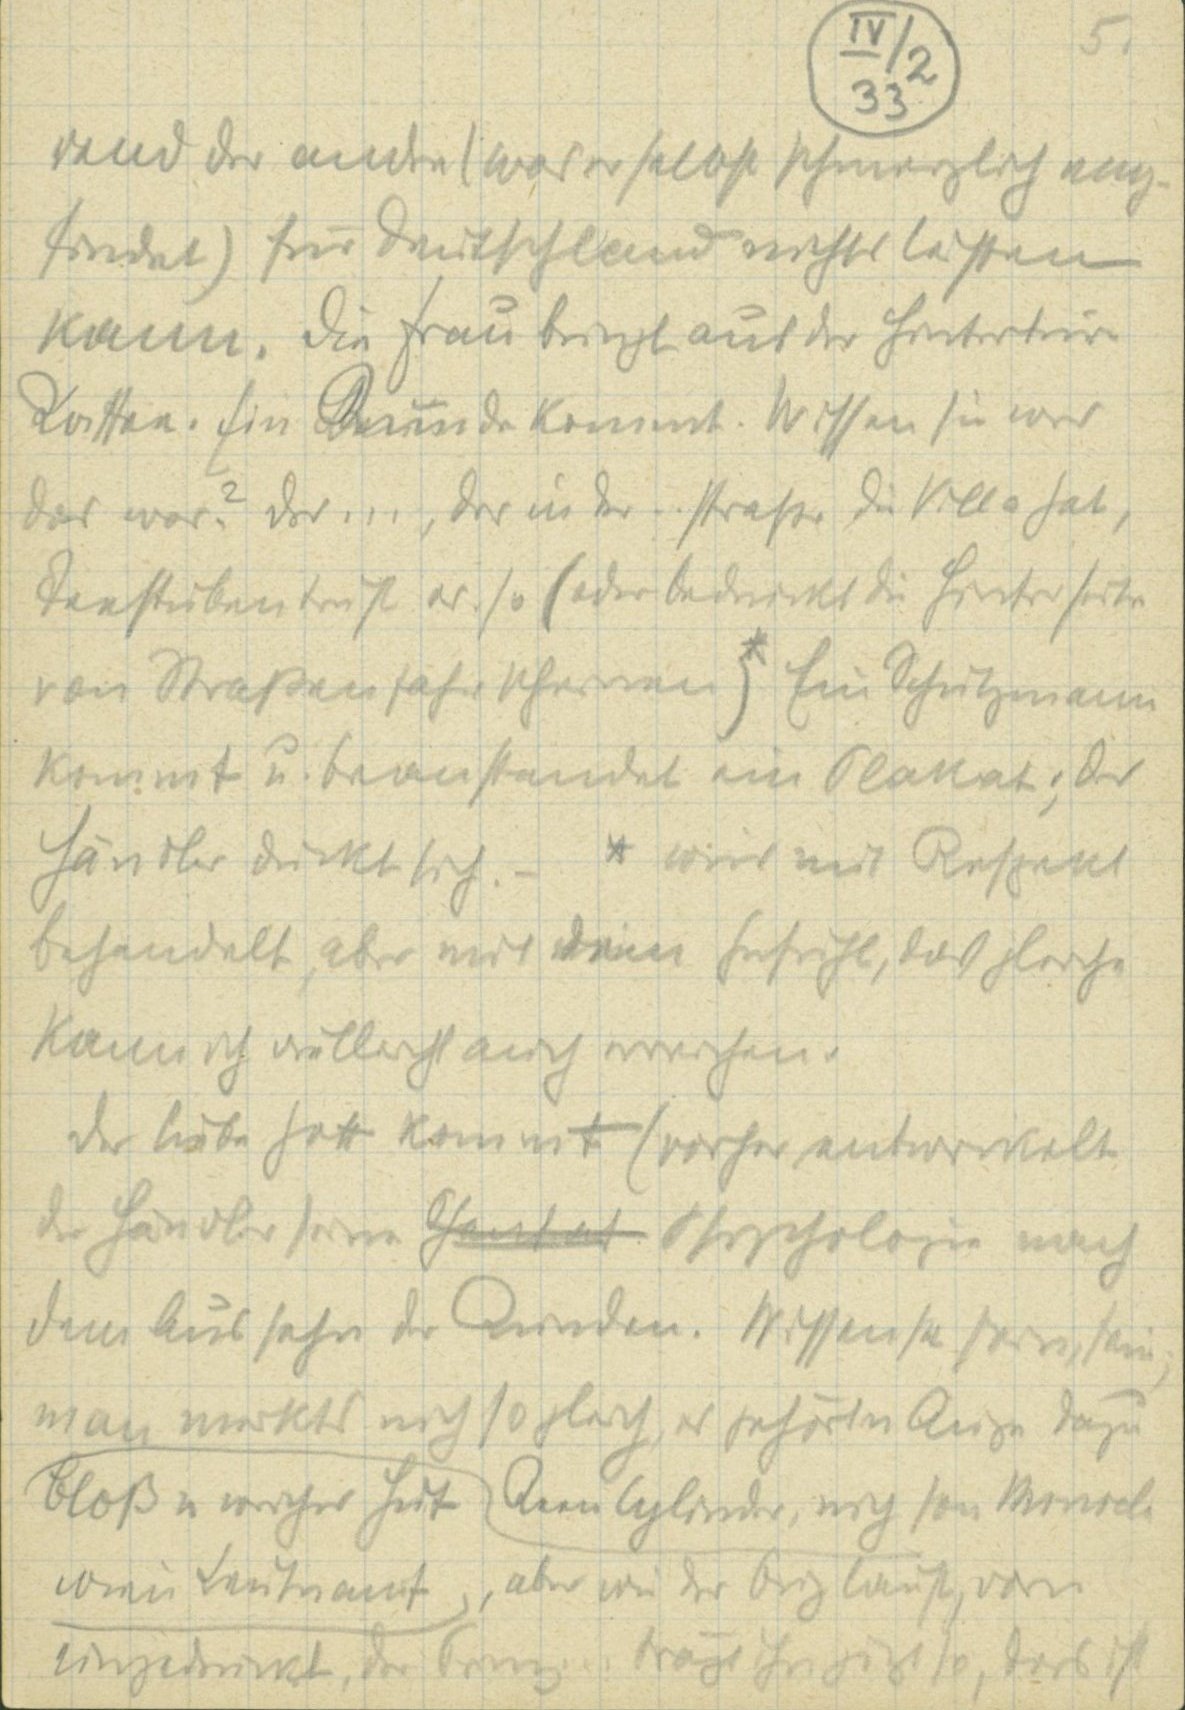 IV/2
33
5.
rend der andre (was er selbst schmerzlich emp-
findet) für Deutschland nichts leisten
kann. Die Frau bringt aus der Hintertür
Kaffee. Ein Kunde kommt. Wissen sie wer
das war? Der ..., der in der .. straße die Villa hat,
er. so (oder bedruckt die Hinterseite
von Straßenfahrscheinen)* Ein Schutzmann
kommt u. beanstandet ein Plakat; der
Händler duckt sich. – * wird mit Respekt
behandelt, aber mit dem Gefühl, das gleiche
kann ich vielleicht auch erreichen.
Der liebe Gott kommt (vorher entwickelt
der Händler seine Psychologie nach
dem Aussehn der Kunden. Wissen se fein, fein;
man merkts nich so gleich, es gehört n Auge dazu
bloß n weicher Hut Keen Cylinder, nich son Monocle
wie n Leutnant, aber wie der Kniff läuft, vorn
eingedrückt, der Prinz .. trägt ihn jetzt so, das ist